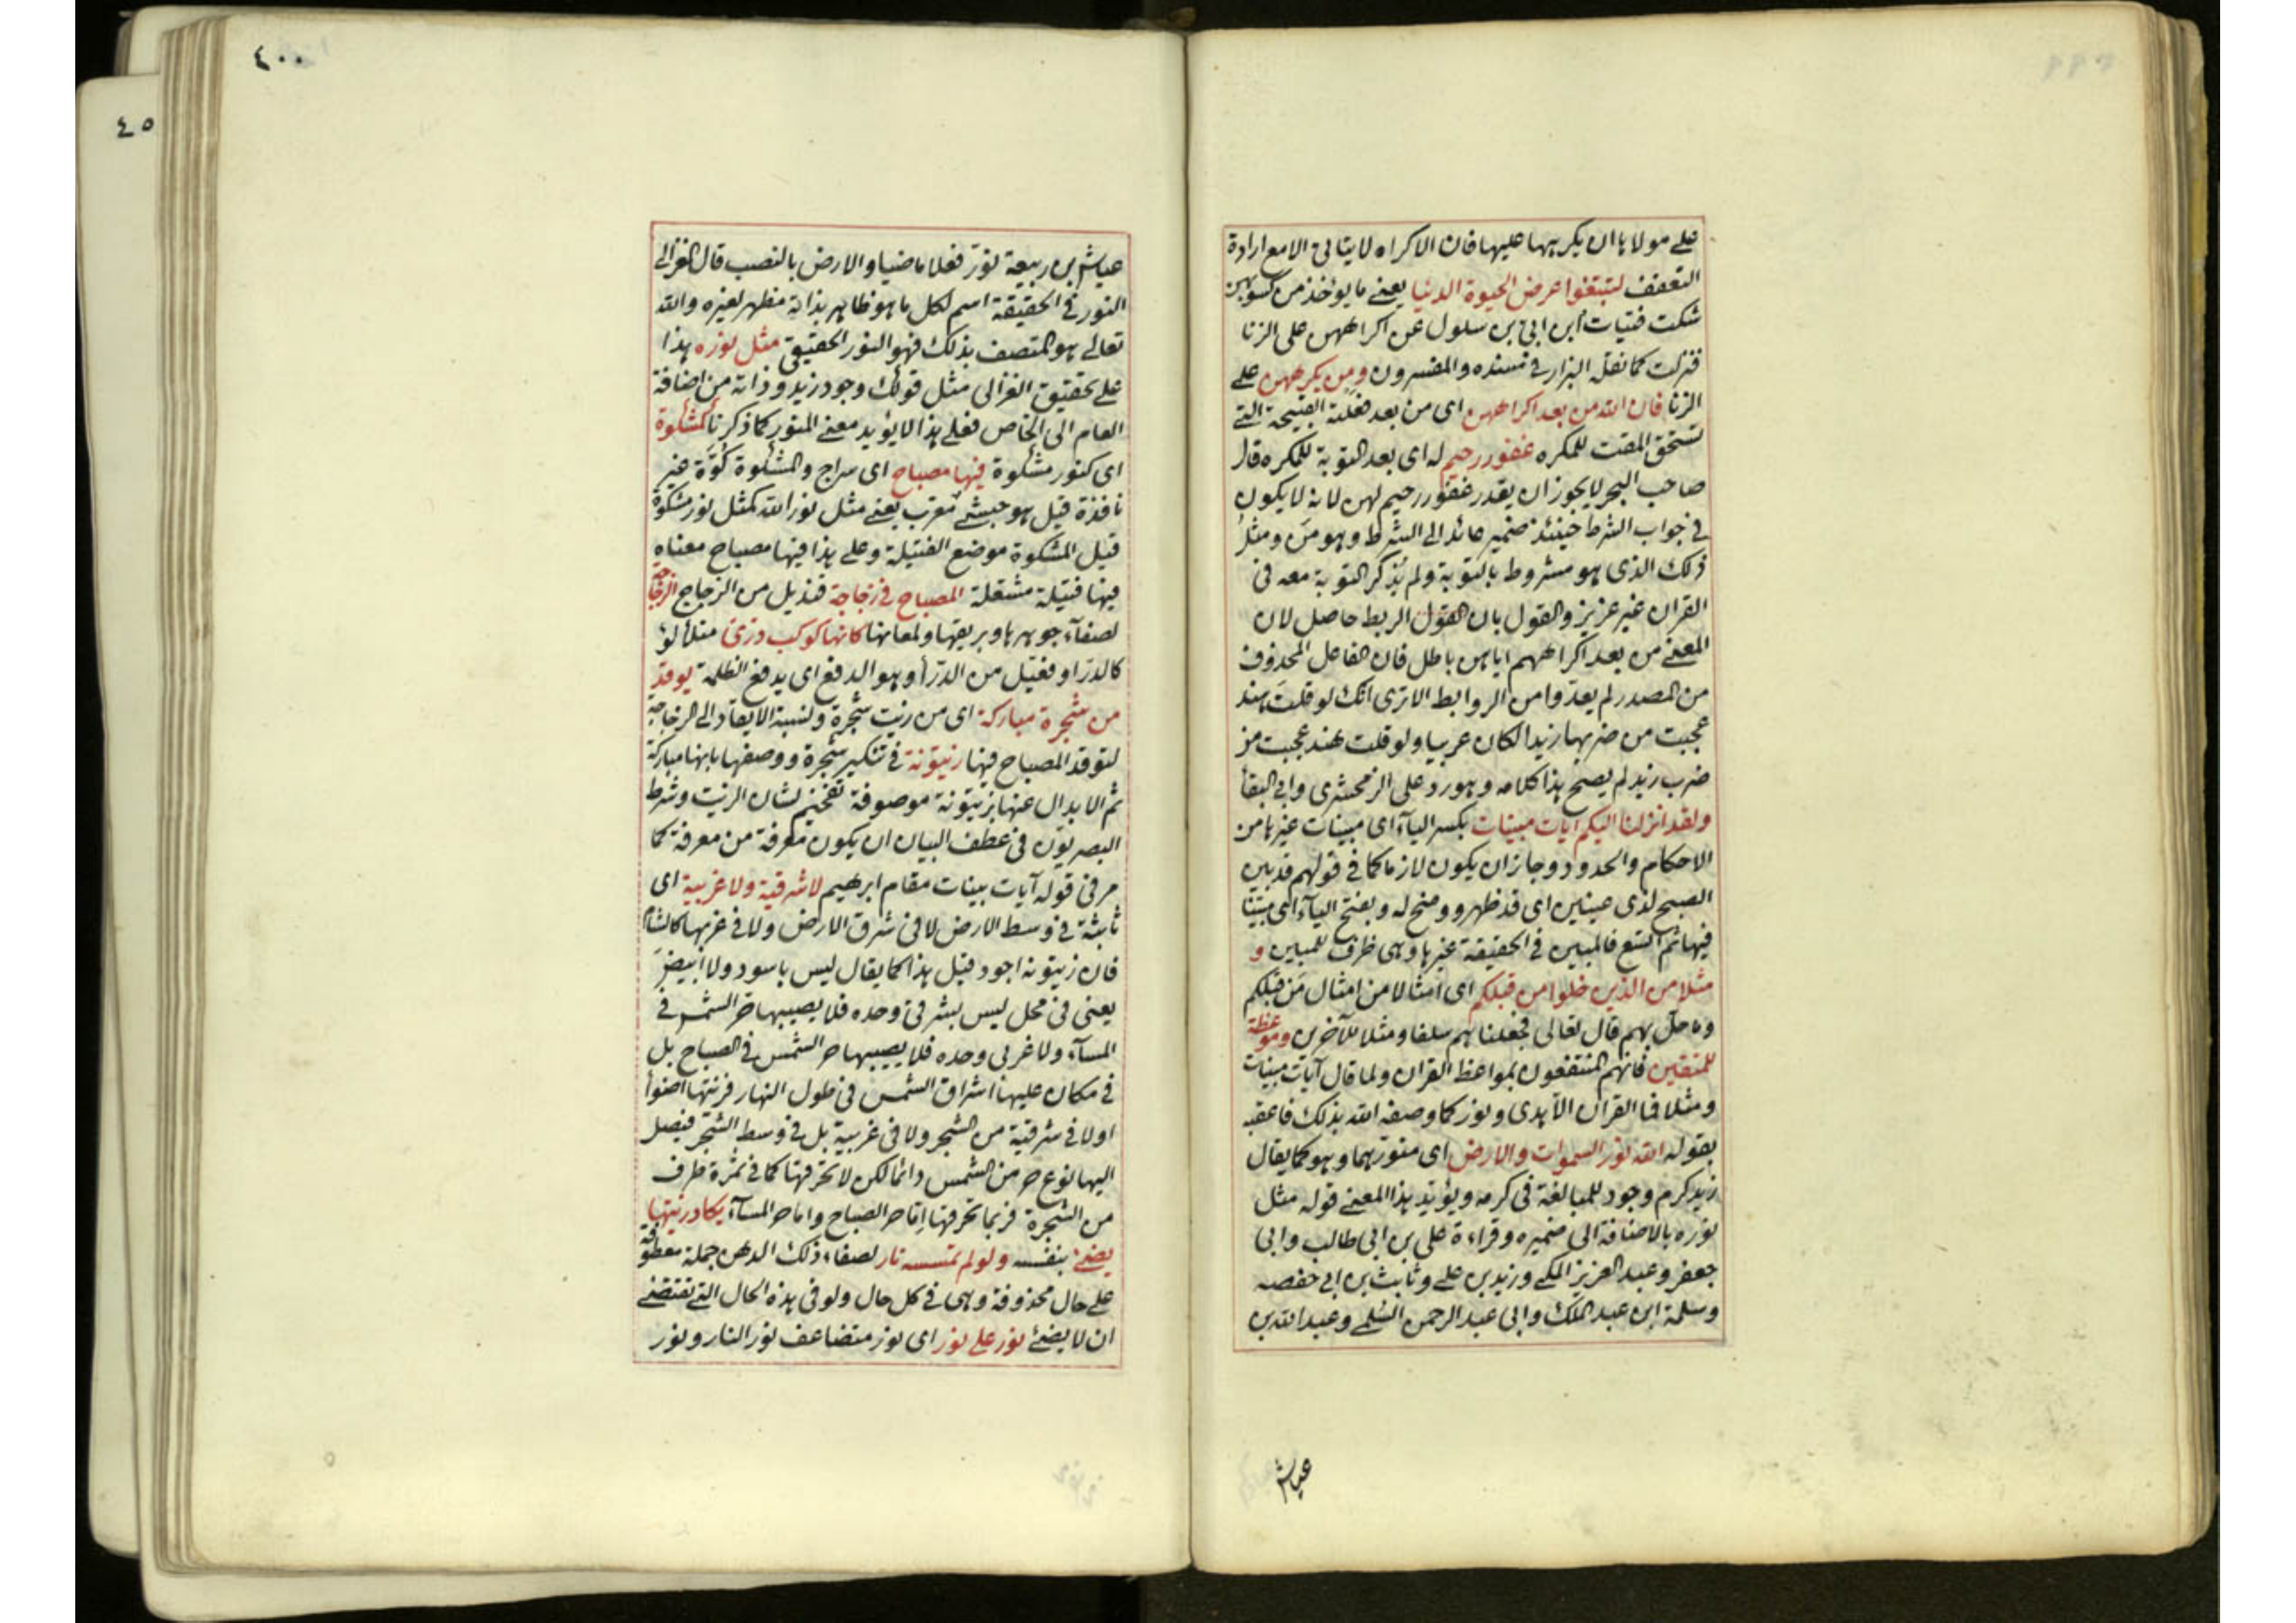 على مولاها ان يكريها عليها فان الاكراه لا يتاتى الا مع ارادة
التعفف لتبتغوا عرض الحيوة الدنيا يعنى ما يوخذ من كسوبهن
شكت فتيات ابن ابى بن سلول عن اكراههن على الزنا
فنزلت كما نقله البزار فى مسنده والمفسرون ومن يكرههن على
الزنا فان الله من بعد اكراههن اى من بعد فعلته القبيحة التى
تستحق المقت للمكره غفور رحيم له اى بعد التوبة للمكره قال
صاحب البحر لا يجوز ان يقدر غفور رحيم لهن لانه لا يكون
فى جواب الشرط حينئذ ضمير عائد الى الشرط وهو مَن ومثل
ذلك الذى هو مشروط بالتوبة ولم يُذكر التوبة معه فى
القران غير عزيز والقول بان القول الربط حاصل لان
المعنى من بعد اكراههم اياهن باطل فان الفاعل المحذوف
من المصدر لم يعدّوا من الروابط الا ترى انك لو قلت هند
عجبت من ضربها زيدا لكان عربيا ولو قلت هند عجبت من
ضرب زيد لم يصح هذا كلامه وهو رد على الزمخشرى وابى البقأ
ولقد انزلنا اليكم آيات مبينات بكسر اليآء اى مبينات غيرها من
الاحكام والحدود وجاز ان يكون لازما كما فى قولهم قد بين
الصبح لذى عينين اى قد ظهر ووضح له وبفتح اليآء اى مبيّنا
فيها ثم اتسع فالمبين فى الحقيقة غيرها وهى ظرف للمبين و
مثلا من الذين خلوا من قبلكم اى امثالا من امثال مَن قبلكم
وما حلّ بهم قال تعالى فجعلناهم سلفا ومثلا للآخرين وموعظة
للمتقين فانهم المنتفعون بمواعظ القران ولما قال آيات مبينات
ومثلا فما القران الا هدى ونور كما وصفه الله بذلك فاعقبه
بقوله الله نور السموات والارض اى منورهما وهو كما يقال
زيد كرم وجود للمبالغة فى كرمه ويؤيد هذا المعنى قوله مثل
نوره بالاضافة الى ضميره وقراءة على بن ابى طالب وابى
جعفر وعبد العزيز المكى وزيد بن على وثابت بن ابى حفصه
وسلمة ابن عبد الملك وابى عبد الرحمن السُلمى وعبد الله بن
عياش
٤٠٠
عياش بن ربيعة نوّر فعلا ماضيا والارض بالنصب قال الغزالى
النور فى الحقيقة اسم لكل ما هو ظاهر بذاته مظهر لغيره والله
تعالى هو المتصف بذلك فهو النور الحقيقى مثل نوره هذا
على تحقيق الغزالى مثل قولك وجود زيد وذاته من اضافة
العام الى الخاص فعلى هذا لا يؤيد معنى المنور كما ذكرنا كمشكوة
اى كنور مشكوة فيها مصباح اى سراج والمشكوة كُوَّة غير
نافذة قيل هو حبشى معرب يعنى مثل نور الله كمثل نور مشكوة
قيل المشكوة موضع الفتيلة وعلى هذا فيها مصباح معناه
فيها فتيلة مشتعلة المصباح فى زجاجة قنديل من الزجاج الزجاجة
لصفآء جوهرها وبريقها ولمعانها كانها كوكب درى متلألؤ
كالدر او فعيل من الدرأ وهو الدفع اى يدفع الظلمة يوقد
من شجرة مباركة اى من زيت شجرة ولنسبة الايقاد الى الزجاجة
لتوقد المصباح فيها زيتونة فى تنكير شجرة ووصفها بانها مباركة
ثم الابدال عنها بزيتونة موصوفة تفخيم لشان الزيت وشرط
البصريون فى عطف البيان ان يكون معرفة من معرفة كما
مر فى قوله آيات بينات مقام ابرهيم لا شرقية ولا غربية اى
ثابتة فى وسط الارض لا فى شرق الارض ولا فى غربها كالشأم
فان زيتونه اجود قيل هذا كما يقال ليس باسود ولا ابيض
يعنى فى محل ليس بشرقى وحده فلا يصيبها حر الشمس فى
المسآء ولا غربى وحده فلا يصيبها حر الشمس فى الصباح بل
فى مكان عليها اشراق الشمس فى طول النهار فزيتها اضوأ
او لا فى شرقية من الشجر ولا فى غربية بل فى وسط الشجر فيصل
اليها نوع حر من الشمس دائما لكن لا تحرقها كما فى ثمرة طرف
من الشجرة فربما تحرقها اما حر الصباح واما حر المسآء يكاد زيتها
يضئ بنفسه ولو لم تمسسه نار لصفاء ذلك الدهن جملة معطوفة
على حال محذوفة وهى فى كل حال ولو فى هذه الحال التى تقتضى
ان لا يضئ نور على نور اى نور متضاعف نور النار ونور